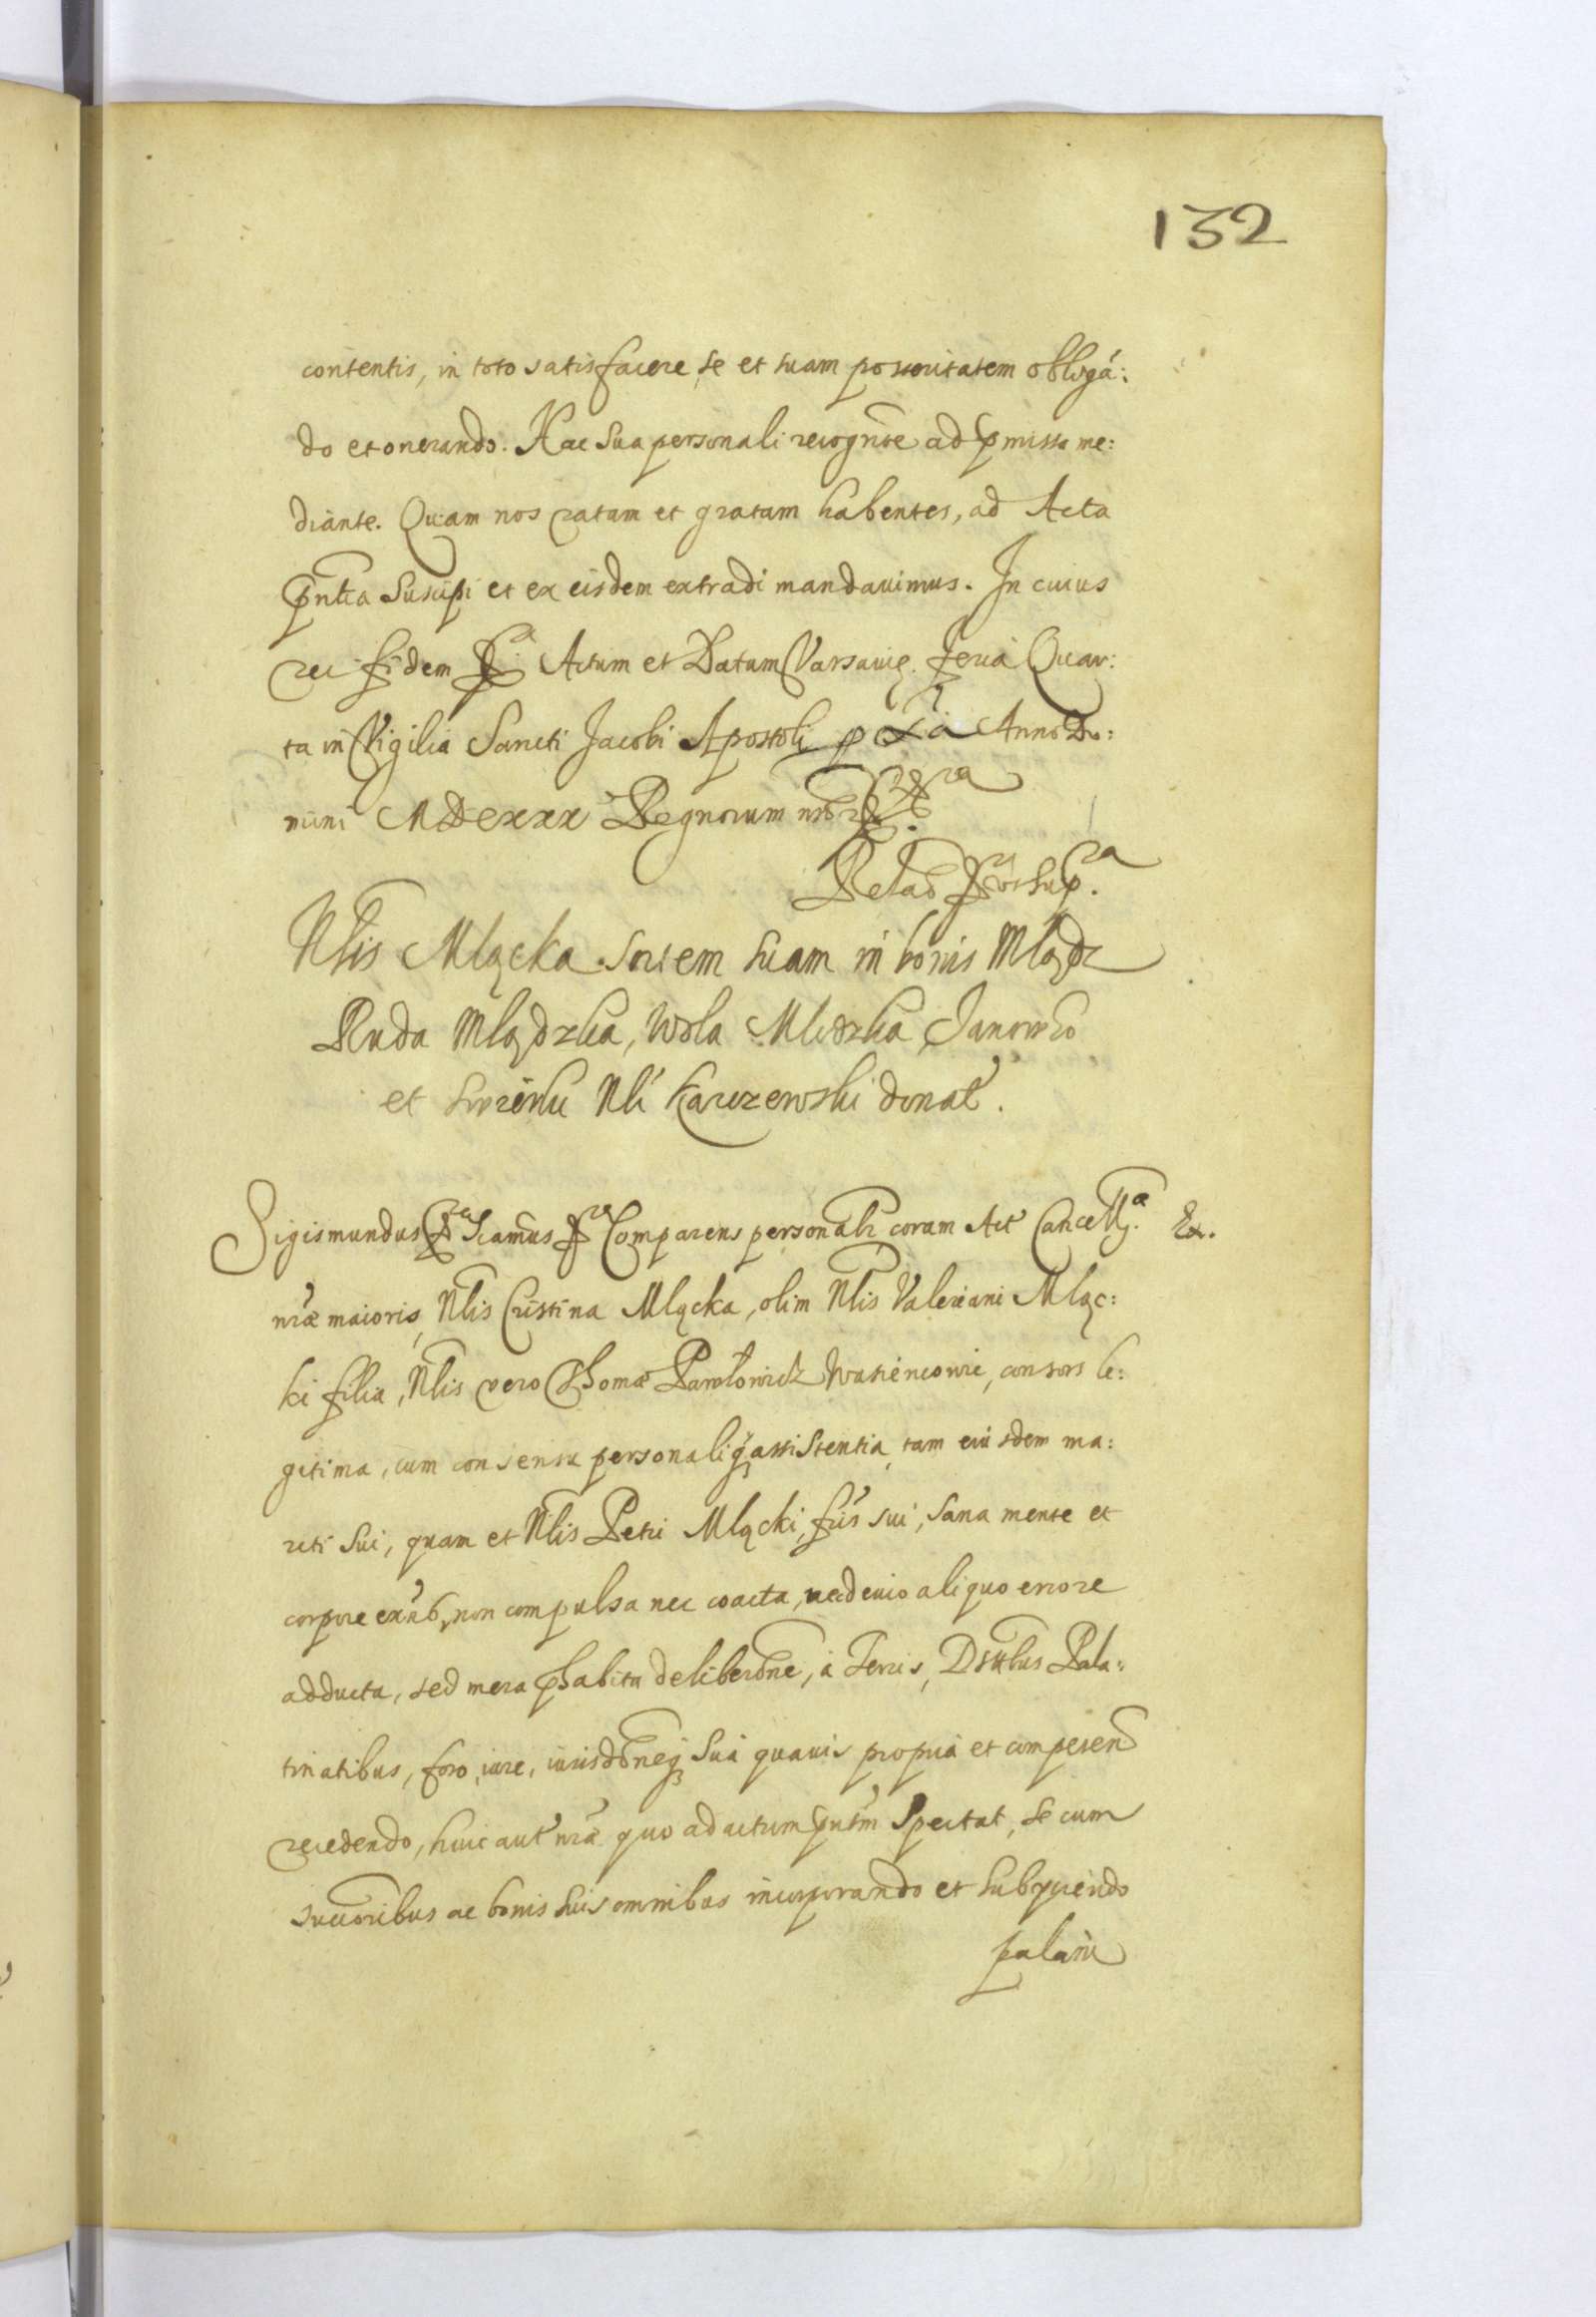 132
contentis, in toto satisfacere, se et suam posteritatem obligā:
do et onerando. Hac sua personali recognñe ad p̄missa me:
diante. Quam nos ratam et gratam habentes, ad Acta
p̄ntia suscipi et ex eisdem extradi mandavimus. In cuius
rei fidem Actum et Datum Varsavię. Feria Quar:
ta in Vigilia Sancti Jacobi Apostoli Anno Do:
mini MDCXXX Regnorum nrōr
Relaō sup.ra
Nb̃lis Mlącka sortem suam in bonis Mlądz
Ruda Mlądzka, Wola Mlądzka, Janowko
et Nb̃li Karczewski donat.
Sigismundus Scamus Comparens personalr̃ coram Act Cancellę.æ Ex.
nr̄æ maioris, Nb̃lis Cristina Mlącka, olim Nb̃lis Valeriani Mląc:
ki filia, Nb̃lis vero Thomæ Pawłowicz consors le:
gitima, cum consensu personaliq̨ assistentia, tam eiusdem ma:
riti sui, quam et Nb̃lis Petri Mlącki, fr̄is sui, sana mente et
corpore exn̄s, non compulsa nec coacta, nec devio aliquo errore
adducta, sed mera p̄habita deliberōne, à Terris, Dstribus Pala:
tinatibus, foro, iure, iurisdōneq̨ suâ quavis propriâ et competen
recedendo, huic aut nr̄æ quo ad actum p̄ntm̄ spectat, se cum
succ̄oribus ac bonis suis omnibus incorporando et subyciendo
palam